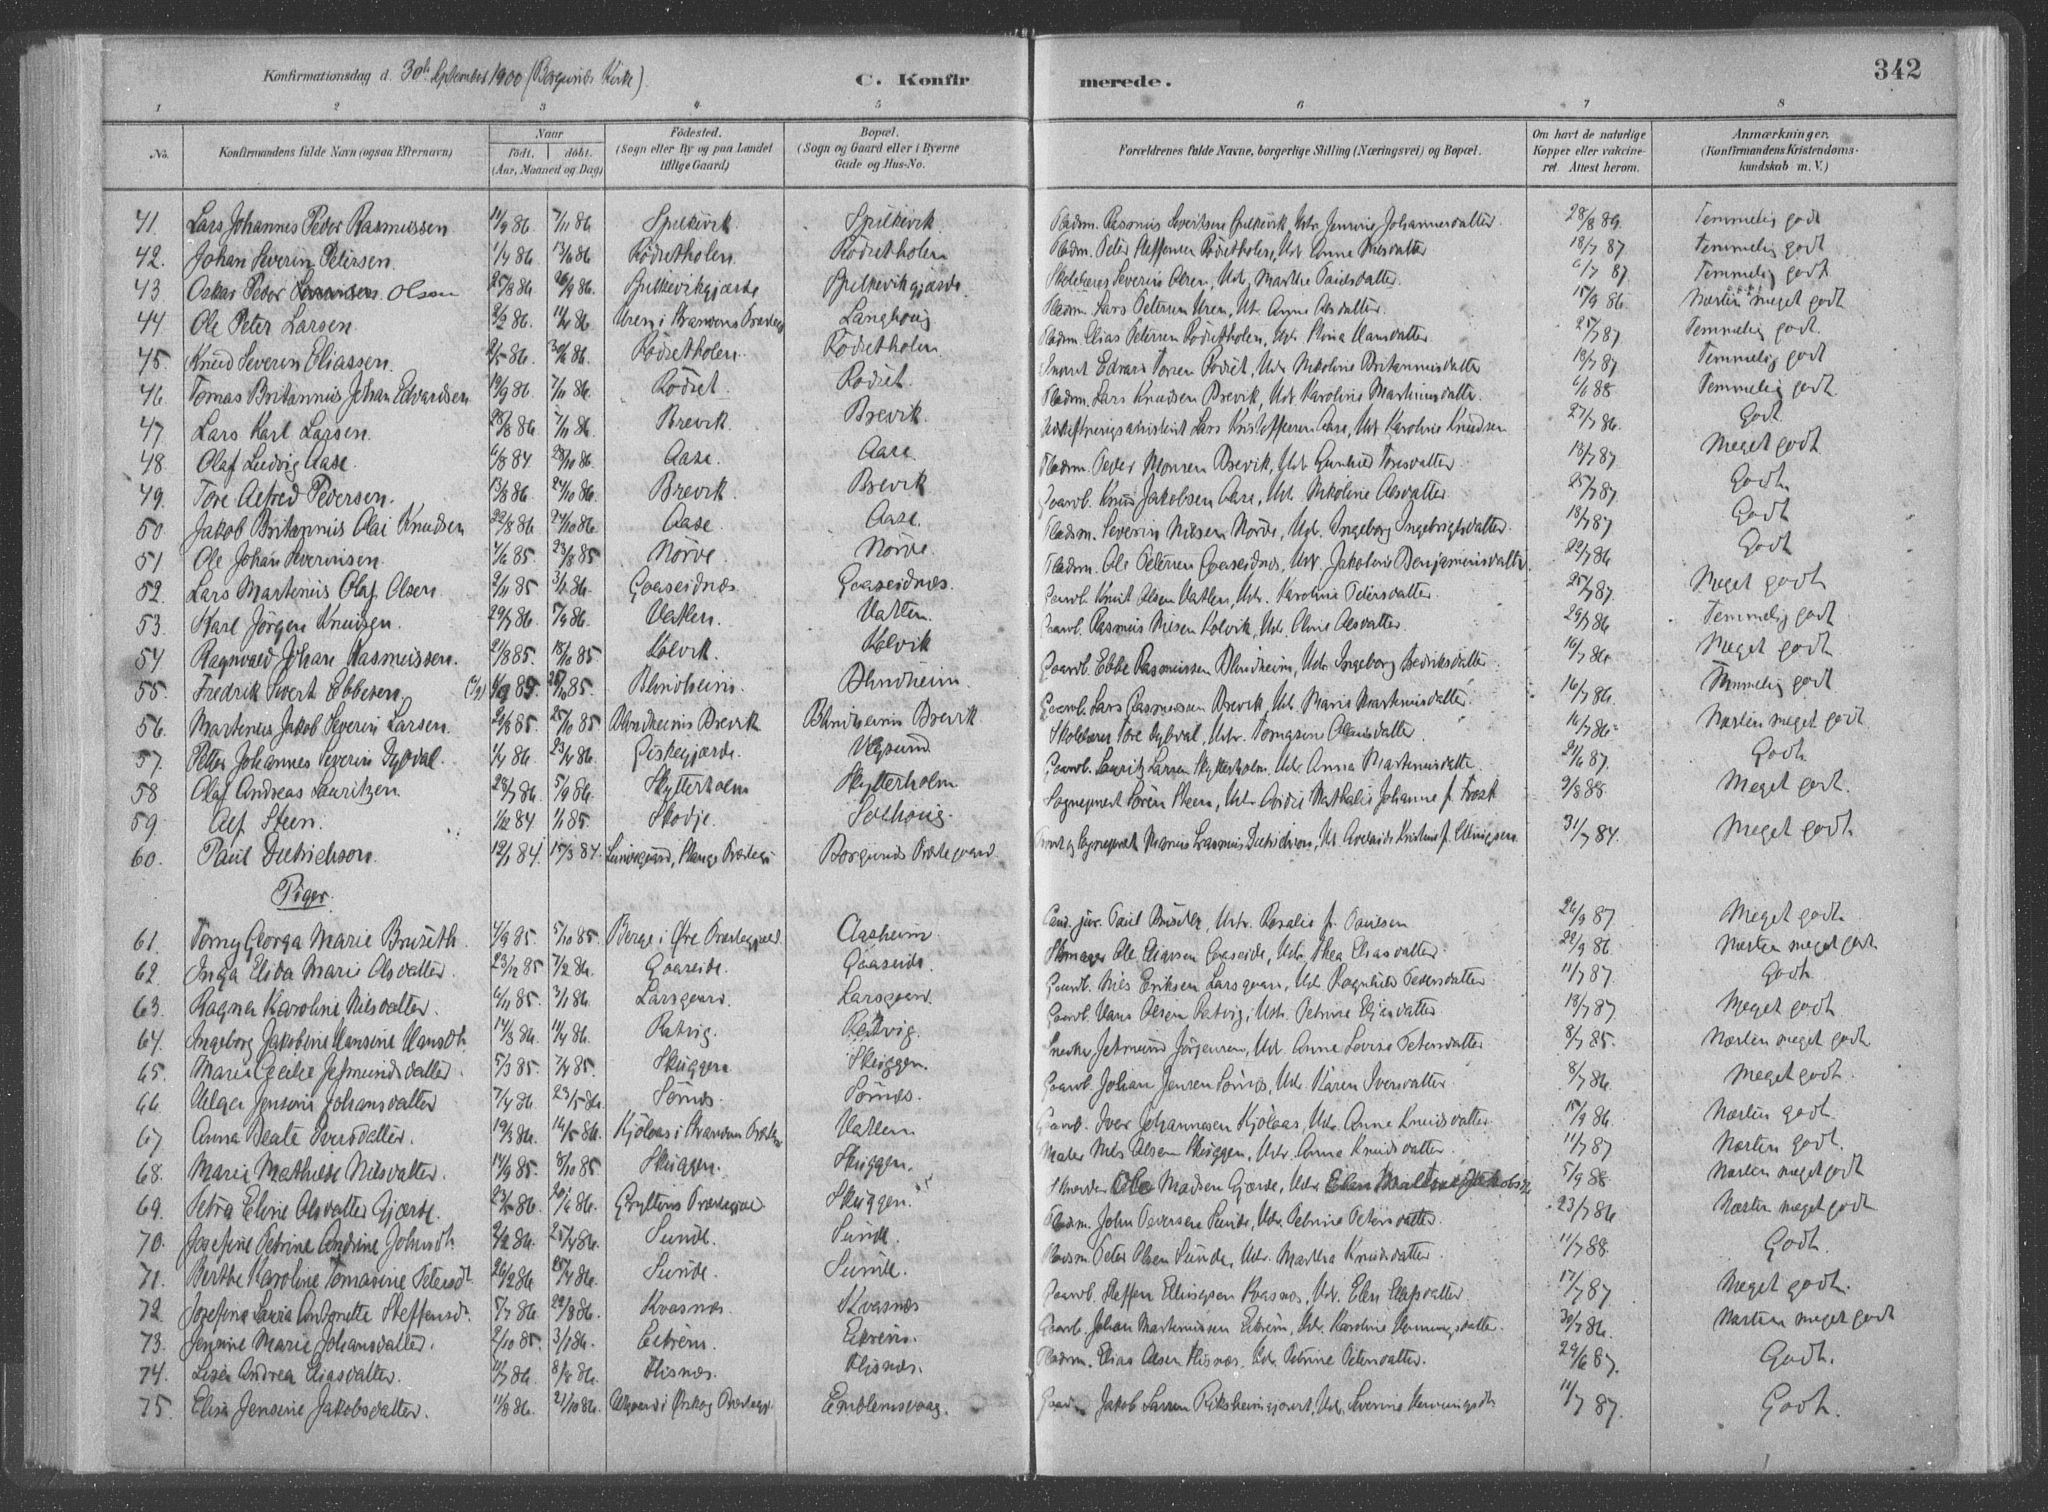 Konfirmationsdag d. 30te September 1900 (Borgunds Kirke)
C. Konfirmerede.
342
1 2 3 4 5 6 7 8
No. Konfirmandens fulde Navn (ogsaa Efternavn) Naar Födt. döbt. (Aar, Maaned og Dag) Födested. (Sogn eller By og paa Landet tillige Gaard) Bopæl. (Sogn og Gaard eller i Byerne Gade og Hus-No. Forældrenes fulde Navne, borgerlige Stilling (Næringsvei) og Bopæl. Om havt de naturlige Kopper eller vaccineret. Attest herom. Anmærkninger. (Konfirmandens Kristendomskundskab m. V.)
41. Lars Johannes Peder Rasmussen 11/9 86. 7/11 86. Spilkevik. Spilkevik Pladsm. Rasmus Severitsen Spilkevik, Hstr. Jensine Johannesdatter 28/8 89. Temmelig godt
42. Johan Severin Petersen. 1/4 86. 13/6 86 Rödsetholen. Rödsetholen Pladsm. Peter Steffensen Rödsetholen, Hstr. Anne Nilsdatter 18/7 87. Temmelig godt
43. Oskar Peder Olsen 25/8 86. 26/9 86. Spilkevikgjærde Spilkevikgjærde Skolelærer Severin Olsen, Hstr. Marthe Paulsdatter 6/7 87. Temmelig godt.
44. Ole Peter Larsen 2/2 86. 11/4 86. Uren i Vanden Præstegj. Langhaug Pladsm. Lars Petersen Uren, Hstr. Anne Olsdatter. 15/9 86. Næsten meget godt
45. Knud Severin Eliassen. 2/5 86. 30/6 86. Rödsetholen. Rödsetholen. Pladsm. Elias Petersen Rödsetholen, Hstr. Stina Hansdatter 25/7 87 Temmelig godt.
46. Tomas Britannus Johan Edvardsen 19/9 86. 7/11 86. Rödset. Rödset. Edvard Toresen Rödset, Hstr. Nikoline Britannusdatter 18/7 87. Temmelig godt
47. Lars Karl Larsen. 28/8 86. 7/11 86. Brevik. Brevik. Pladsm. Lars Knudsen Brevik, Hstr. Karoline Martinusdatter. 6/8 88 Temmelig godt.
48. Olaf Ludvig Aase. 6/8 84. 28/10 86. Aase. Aase. Udskiftningsassistent Lars Kristoffersen Aase, Hstr. Karoline Knudsen 27/7 86. Godt
49. Tore Alfred Pedersen. 13/8 86. 24/10 86. Brevik. Brevik Pladsm. Peder Monsen Brevik, Hstr. Gunhild Toresdatter 18/7 87. Meget godt
50. Jakob Britannus Olai Knudsen 22/8 86. 24/10 86. Aase. Aase. Gaardb. Knud Jakobsen Aase, Hstr. Nikoline Olsdatter 25/7 87. Godt.
51. Ole Johan Severinsen. 4/6 85. 23/8 85 Nörve. Nörve. Pladsm. Severin Nilsen Nörve, Hstr. Ingeborg Ingebrigtsdatter. 18/7 87 Godt
52. Lars Martinus Olaf Olsen 2/11 85. 3/1 86. Gaaseidnæs. Gaaseidnæs. Pladsm. Ole Petersen Gaaseidnæs, Hstr. Jakobine Benjaminsdatter. 22/7 86 Godt
53. Karl Jörgen Knudsen. 29/7 86. 5/9 86. Vatlen. Vatten. Gaardb. Knut Olsen Vatlen, Hstr. Karoline Petersdatter. 25/7 87. Meget godt.
54. Ragnvald Johan Rasmussen. 21/8 85. 18/10 85 Kolvik. Kolvik Gaardb. Rasmus Nilsen Kolvik, Hstr. Oline Olsdatter. 29/7 86 Temmelig godt
55. Fredrik Sivert Ebbesen 85 85. Blindheim. Blindheim Gaardb. Ebbe Rasmussen Blindheim, Hstr. Ingeborg Fredriksdatter 16/7 86. Meget godt
56. Martinus Jakob Severin Larsen. 29/8 85. 25/10 85 Blindheims Brevik Blindheims Brevik Gaardb. Lars Rasmussen Brevik, Hstr. Maria Martinusdatter. 16/7 86. Temmelig godt
57. Petter Johannes Severin Dybdal. 1/4 86. 23/4 86. Giskegjærde. Vegsund Skolelærer Tore Dybdal, Hstr. Tomasine Olausdatter. 16/7 86. Næsten meget godt.
58 Olaf Andreas Lauritzen 28/7 86. 5/9 86. Skytterholm Skytterholm Gaardb. Lauritz Larsen Skytterholm, Hstr. Anna Martinusdatter 21/6 87. Godt.
59. Alf Steen. 1/12 84. 1/1 85. Skodje. Solhoug. Sogneprest Sören Steen, Hstr. Mathilde Johanne f. Frost 9/8 88 Meget godt.
60. Paul Dietrichson. 12/1 84. 15/3 84. Borgunds Præstegaard. Sogneprest Marius Erasmus Dietrichson, Hstr. Kristine f. Ellingsen 31/7 84. Meget godt.
Piger.
61. Tomy Georga Marie Bruseth. 4/9 85. 5/10 85. Berge i Øre Præstegjeld. Aasheim. Cand. jur. Paul Bruseth, Hstr. Rosalie f. Paulsen 26/9 87. Meget godt.
62. Inga Elida Marie Olsdatter. 23/12 85 7/2 86. Gaaseide. Gaaseide. Skomager Ole Eliassen Gaaseide, Hstr. Thea Eliasdatter. 22/9 86. Næsten meget godt
63. Ragna Karoline Nilsdatter. 6/11 85. 3/1 86. Larsgaard. Larsgaard. Gaardb. Nils Eriksen Larsgaard, Hstr. Ragnhild Pedersdatter 11/7 87. Godt.
64. Ingeborg Jakobine Hansine Hansdt. 14/3 86. 11/4 86. Ratvig. Ratvig. Gaardb. Hans Olsen Ratvig, Hstr. Petrine Eliasdatter. 18/7 87. Meget godt
65. Marie Cecilie Jetmundsdatter. 5/3 85. 7/4 85. Skuggen Skuggen. Snedker Jetmund Jörgensen, Hstr. Anne Lovise Petersdatter 8/7 85. Næsten meget godt.
66. Helga Jensine Johansdatter 7/4 86. 23/5 86. Sörnæs. Sörnæs. Gaardb. Johan Jensen Sörnæs, Hstr. Karen Iversdatter. 8/7 86. Meget godt.
67. Anna Beate Iversdatter. 19/3 86. 16/5 86. Kjölaas i Vanden Præstegj. Vatten Gaardb. Iver Johannesen Kjölaas, Hstr. Anne Knudsdatter. 15/9 86. Næsten godt.
68. Marie Mathilde Nilsdatter. 14/9 85. 8/10 85. Skuggen. Skuggen. Maler Nils Olsen Skuggen, Hstr. Anna Knudsdatter. 11/7 87 Næsten godt.
69. Petra Eline Olsdatter Gjærde. 23/5 86. 20/6 86. Gryttens Præstegjeld. Skuggen. Skrædder Ole Madsen Gjærde, Hstr. Elen Jakobsd. 5/9 88 Næsten meget godt
70. Josefine Petrine Andrine Johnsdt. 2/2 86. 25/4 86. Sunde. Sunde. Pladsm. John Pedersen Sunde, Hstr. Petrine Petersdatter. 23/7 86 Næsten meget godt.
71. Berthe Karoline Tomasine Petersdt. 26/2 86. 25/4 86. Sunde. Sunde. Pladsm. Peter Olsen Sunde, Hstr. Martha Knudsdatter. 11/7 88. Godt.
72. Josefina Laura Antonette Steffensdt. 5/7 86. 29/8 86. Kvasnæs. Kvasnæs Gaardb. Steffen Ellingsen Kvasnæs, Hstr. Elen Olafsdatter. 17/7 87. Meget godt.
73. Jensine Marie Johansdatter. 2/10 85. 3/1 86. Eikrem. Eikrem. Gaardb. Johan Martinussen Eikrem, Hstr. Karoline Henningsdatter. 30/7 86. Næsten meget godt
74. Lisa Andrea Eliasdatter. 11/7 86. 8/8 86. Flisnæs. Flisnæs. Pladsm. Elias Olsen Flisnæs, Hstr. Petrine Petersdatter. 29/6 87. Godt.
75. Elisa Jensine Jakobsdatter. 11/8 86. 21/10 86. i Ørskog Præstegj. Emblemsvaag. Jakob Larsen Riksheimgjærdet, Hstr. Severine Henningsdtr 11/7 87. Godt.